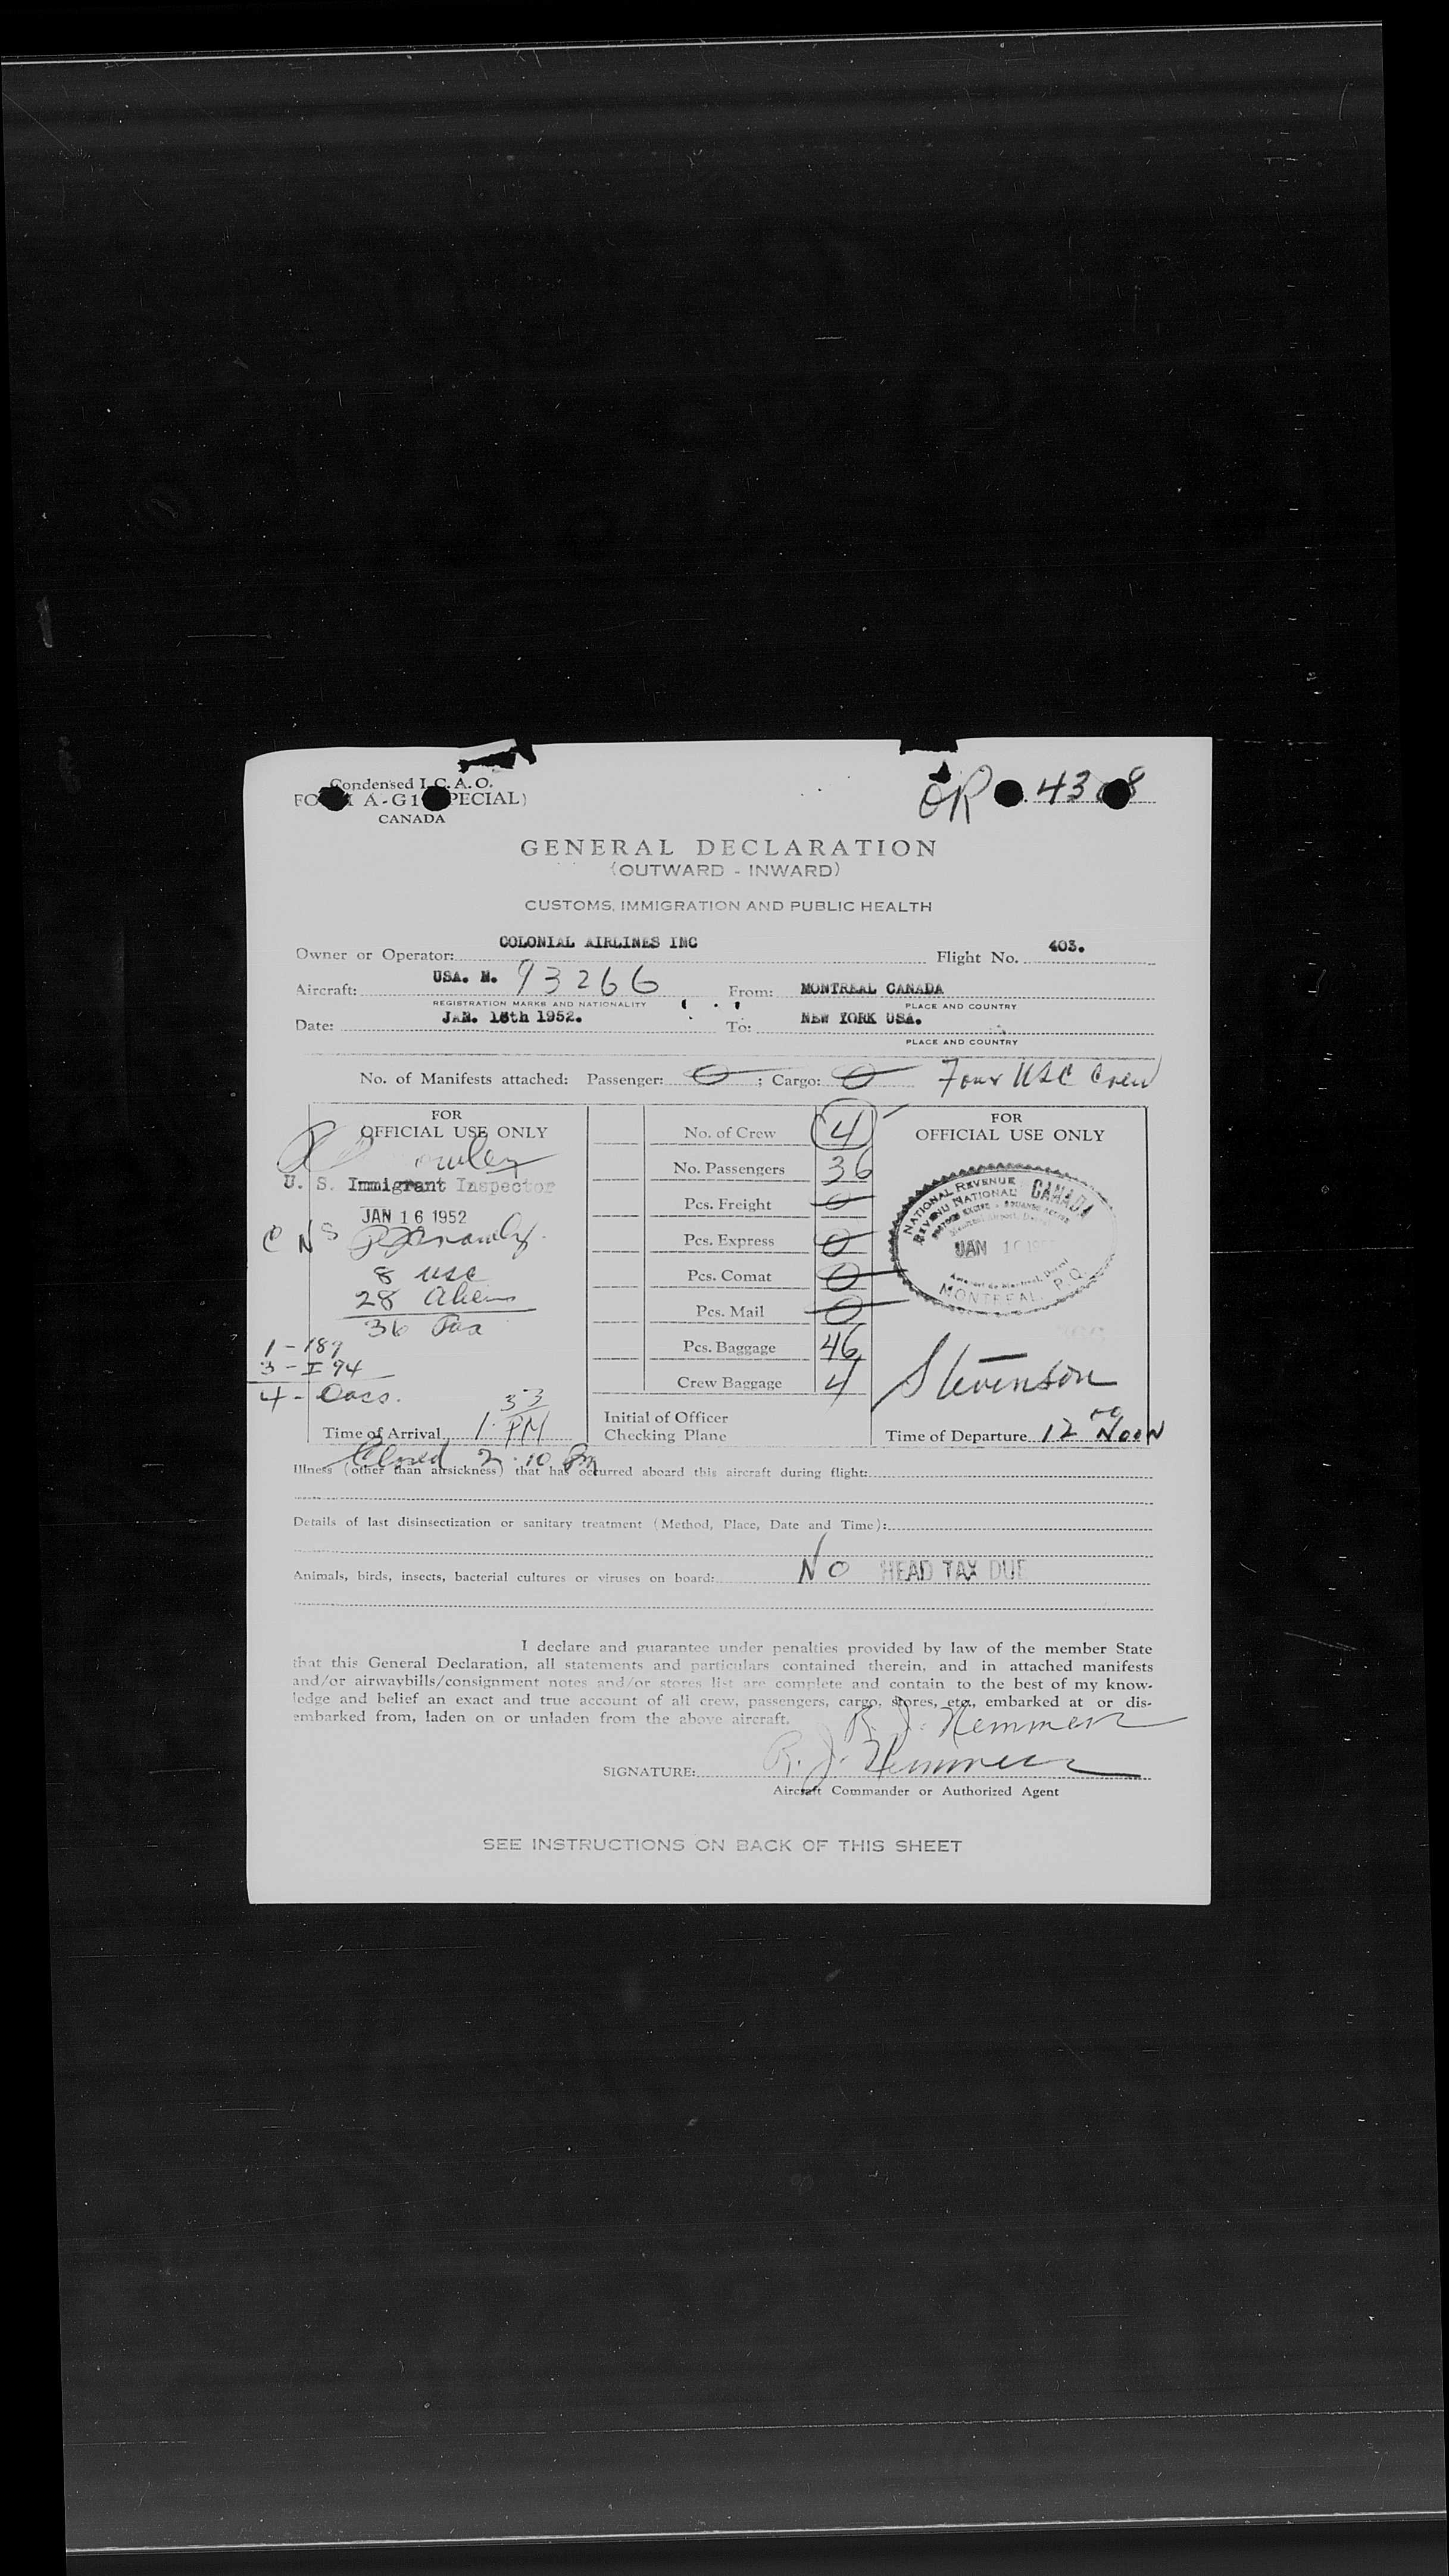 Condensed I.C.A.O.
A-G1 PECIAL)
CANADA
GENERAL DECLARATION
(OUTWARD - INWARD)
CUSTOMS, IMMIGRATION AND PUBLIC HEALTH
Owner or Operator: COLONIAL AIRLINES INC Flight No. 403.
Aircraft: USA. N. 93266 From: MONTREAL CANADA
REGISTRATION MARKS AND NATIONALITY PLACE AND COUNTRY
Date: JAN. 16th 1952. To: NEW YORK USA.
PLACE AND COUNTRY
No. of Manifests attached: Passenger: 0 ; Cargo: 0 Four USC Crew
FOR
OFFICIAL USE ONLY
U. S. Immigrant Inspector
JAN 16 1952
8 USC
28 Aliens
36 Pax
1 - 189
3 - I 94
4 - Docs.
Time of Arrival 1 33 PM
No. of Crew 4
No. Passengers 36
Pcs. Freight 0
Pcs. Express 0
Pcs. Comat 0
Pcs. Mail 0
Pcs. Baggage 46
Crew Baggage 4
Initial of Officer
Checking Plane
FOR
OFFICIAL USE ONLY
NATIONAL REVENUE CANADA
REVENU NATIONAL
JAN
MONTREAL, P.Q.
Stevenson
Time of Departure 12 00 Noon
Closed 2.10 Pm
Illness (other than airsickness) that has occurred aboard this aircraft during flight:
Details of last disinsectization or sanitary treatment (Method, Place, Date and Time):
Animals, birds, insects, bacterial cultures or viruses on board: NO HEAD TAX DUE
I declare and guarantee under penalties provided by law of the member State
that this General Declaration, all statements and particulars contained therein, and in attached manifests
and/or airwaybills/consignment notes and/or stores list are complete and contain to the best of my know-
ledge and belief an exact and true account of all crew, passengers, cargo, stores, etc., embarked at or dis-
embarked from, laden on or unladen from the above aircraft.
SIGNATURE:
Aircraft Commander or Authorized Agent
SEE INSTRUCTIONS ON BACK OF THIS SHEET